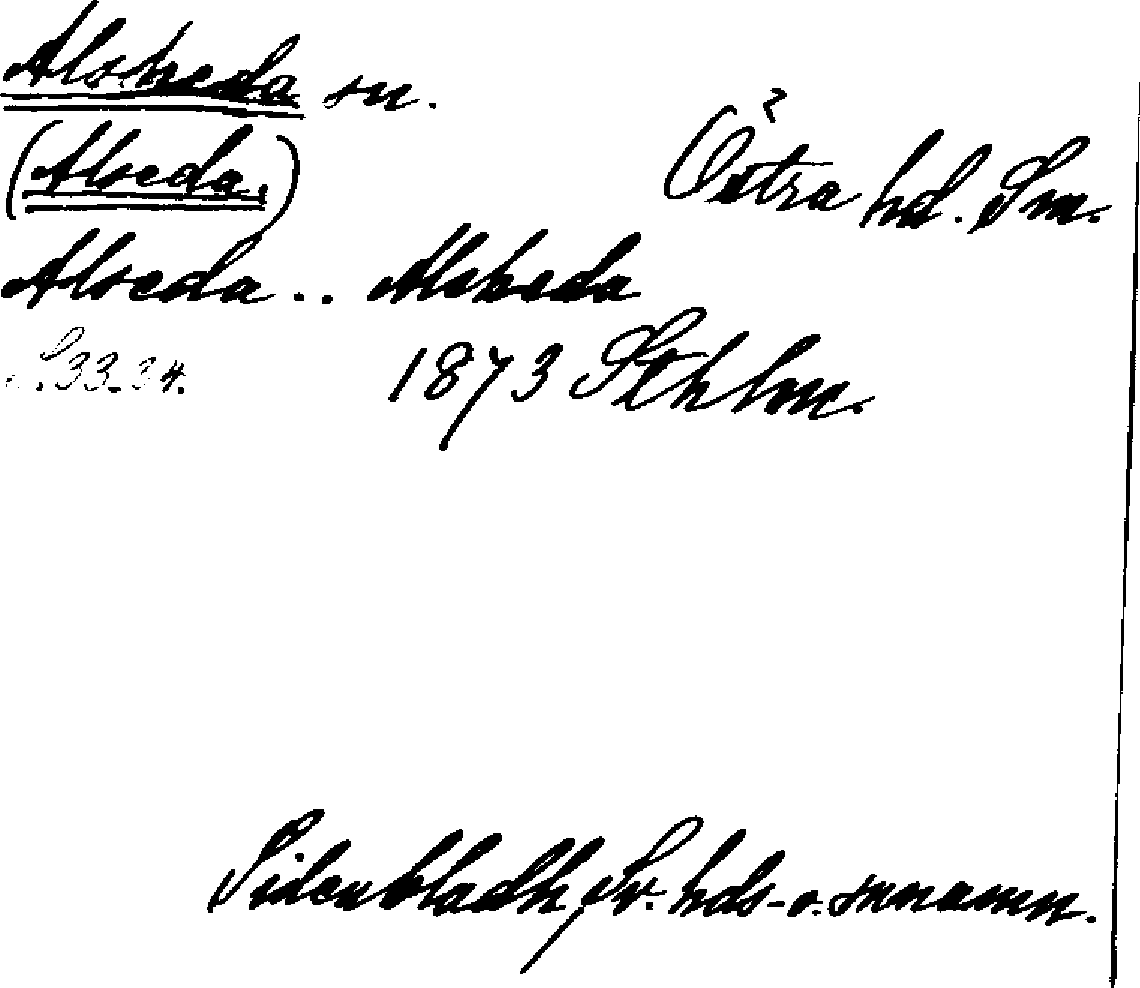 Alsheda sn.
(Alseda.)
Östra hd. Sm.
Alseda .. Alsheda
S. 33-34.
1873 Sthlm.
Sidenbladh, Sv. hds- o. snnamn.